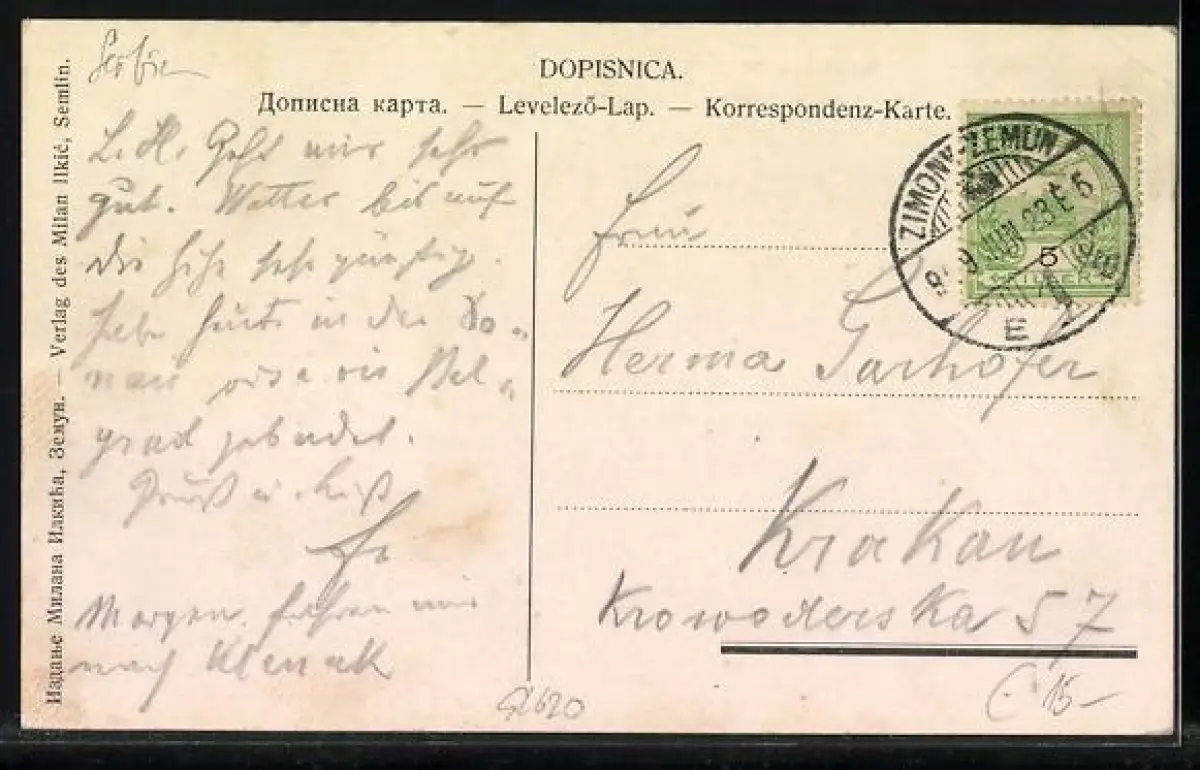 Serbien
DOPISNICA.
Дописна карта. — Levelező-Lap. — Korrespondenz-Karte.
Издање Милана Илкића, Земун. — Verlag des Milan Ilkić, Semlin.
ZIMONY-ZEMUN
E
5
L. H. Geht mir sehr
gut. Wetter bis auf
die Hitze sehr günstig.
Habe heute in der Do-
nau vis a vis Bel-
grad gebadet.
Gruß u. Kuß
Morgen fahren wir
nach Klenak
Frau
Herma Garhofer
Krakau
Krowoderska 57
15-